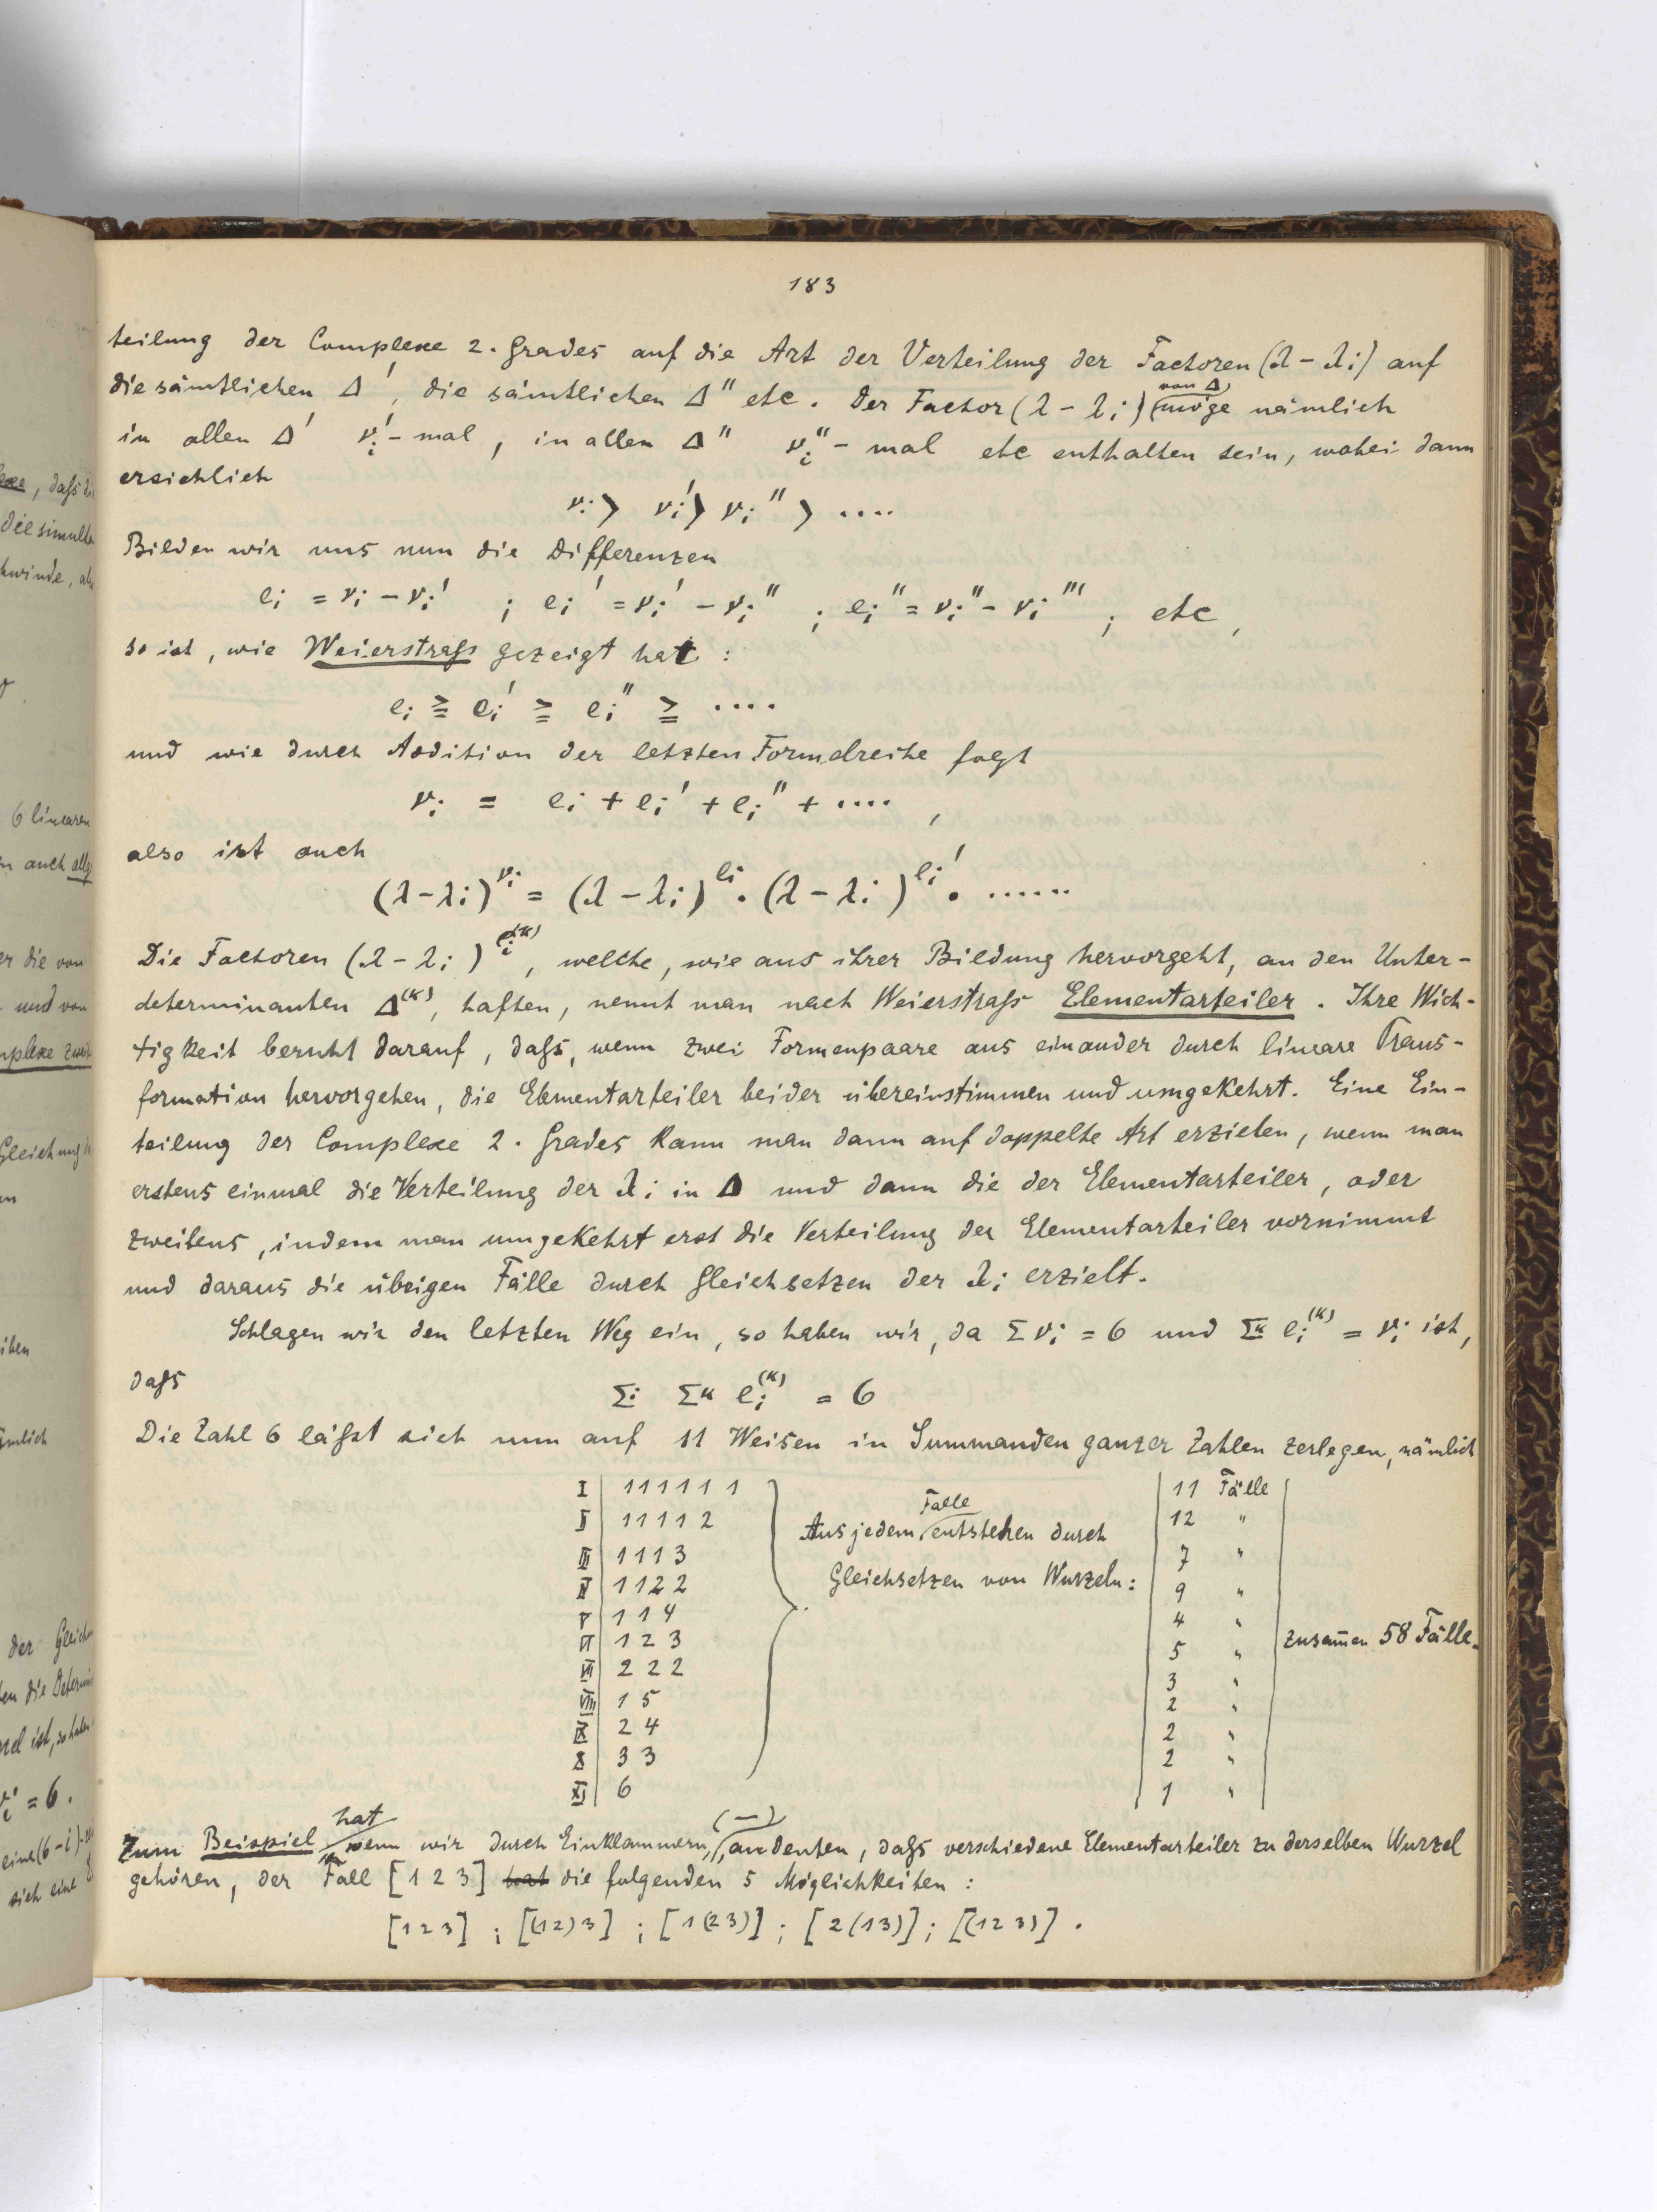 183
teilung der Complexe 2. Grades auf die Art der Verteilung der Factoren (λ - λi) auf
die sämtlichen Δ', die sämtlichen Δ'' etc. Der Factor (λ - λi) (von Δ) möge nämlich
in allen Δ' νi' - mal, in allen Δ'' νi'' - mal etc enthalten sein, wobei dann
ersichtlich
νi > νi' > νi'' > ....
Bilden wir uns nun die Differenzen
ei = νi - νi' ; ei' = νi' - νi'' ; ei'' = νi'' - νi''' ; etc,
so ist, wie Weierstraſs gezeigt hat :
ei ≧ ei' ≧ ei'' ≧ ....
und wie durch Addition der letzten Formelreihe folgt
νi = ei + ei' + ei'' + ....,
also ist auch
(λ-λi)^νi = (λ-λi)^ei . (λ-λi)^ei' . ......
Die Factoren (λ-λi)^ei^(κ), welche, wie aus ihrer Bildung hervorgeht, an den Unter-
determinanten Δ^(κ), haften, nennt man nach Weierstraſs Elementarteiler. Ihre Wich-
tigkeit beruht darauf, daſs, wenn zwei Formenpaare aus einander durch lineare Trans-
formation hervorgehen, die Elementarteiler beider übereinstimmen und umgekehrt. Eine Ein-
teilung der Complexe 2. Grades kann man dann auf doppelte Art erzielen, wenn man
erstens einmal die Verteilung der λi in Δ und dann die der Elementarteiler, oder
zweitens, indem man umgekehrt erst die Verteilung der Elementarteiler vornimmt
und daraus die übrigen Fälle durch Gleichsetzen der λi erzielt.
Schlagen wir den letzten Weg ein, so haben wir, da Σ νi = 6 und Σκ ei^(κ) = νi ist,
daſs
Σi Σκ ei^(κ) = 6
Die Zahl 6 läſst sich nun auf 11 Weisen in Summanden ganzer Zahlen zerlegen, nämlich
I 1 1 1 1 1 1 11 Fälle
II 1 1 1 1 2 12 "
III 1 1 1 3 7 "
IV 1 1 2 2 9 "
V 1 1 4 4 "
VI 1 2 3 5 "
VII 2 2 2 3 "
VIII 1 5 2 "
IX 2 4 2 "
X 3 3 2 "
XI 6 1 "
Aus jedem Falle entstehen durch
Gleichsetzen von Wurzeln:
zusam̄en 58 Fälle.
Zum Beispiel hat, wenn wir durch Einklammern, (—) andeuten, daſs verschiedene Elementarteiler zu derselben Wurzel
gehören, der Fall [1 2 3] hat die folgenden 5 Möglichkeiten :
[1 2 3] ; [(1 2) 3] ; [1 (2 3)] ; [2 (1 3)] ; [(1 2 3)] .